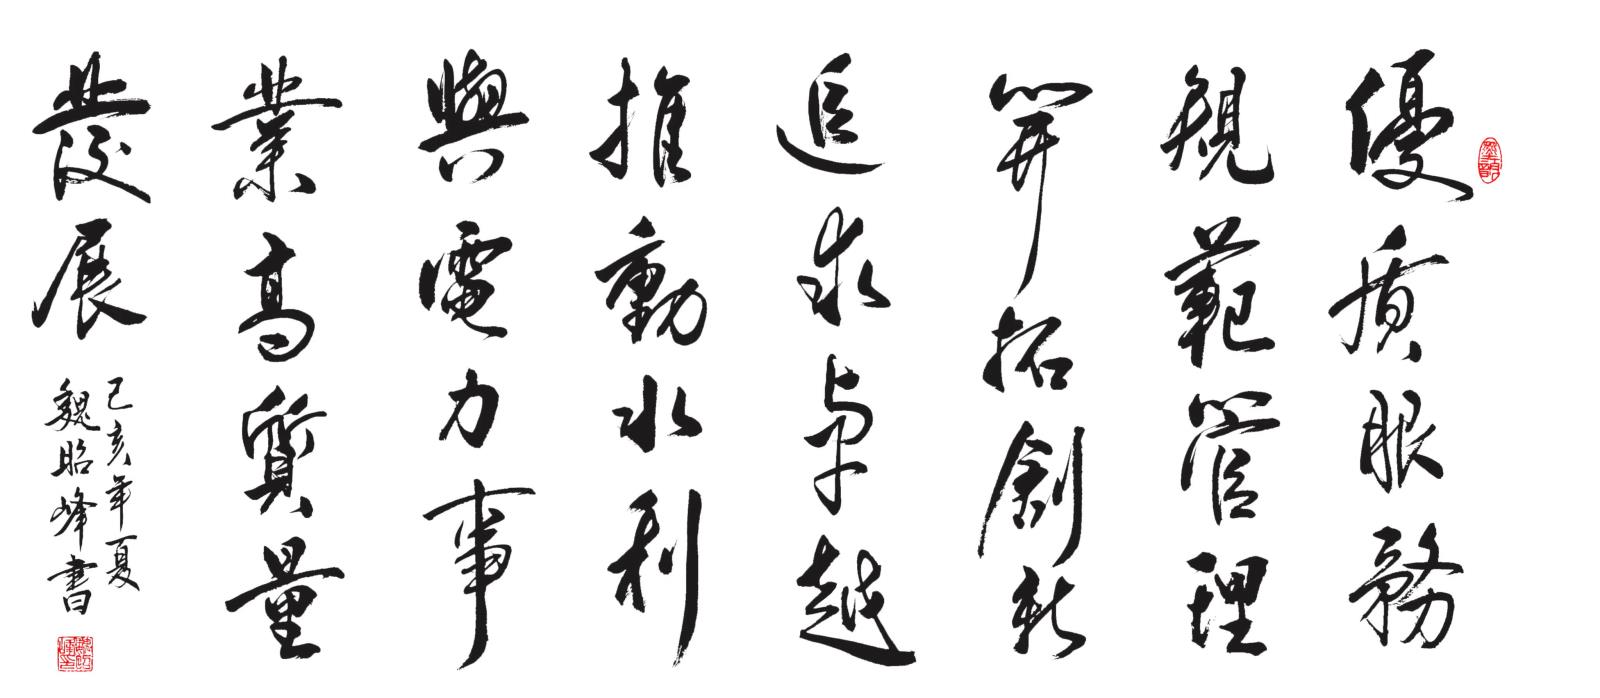 優質服務
規範管理
開拓創新
追求卓越
推動水利
與電力事
業高質量
發展
己亥年夏
魏昭峰書